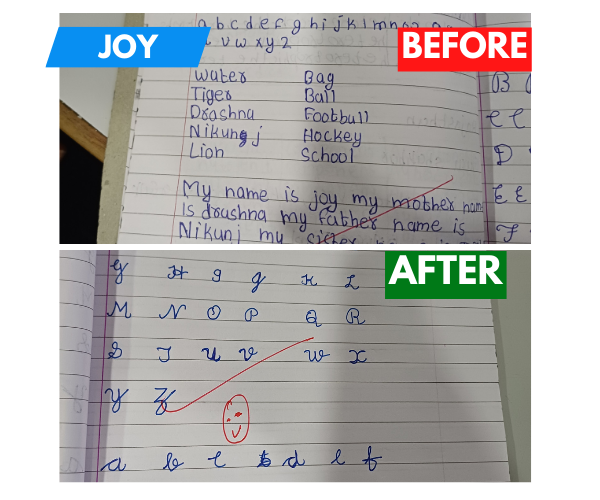 JOY
BEFORE
a b c d e f g h i j k l m n o
u v w x y z
Water Bag
Tiger Ball
Drashna Football
Nikung j Hockey
Lion School
My name is joy my mother nam
is drashna my father name is
Nikunj my sister
B
D
E E
F
AFTER
G H I J K L
M N O P Q R
S T U V W X
Y Z
a b c d e f